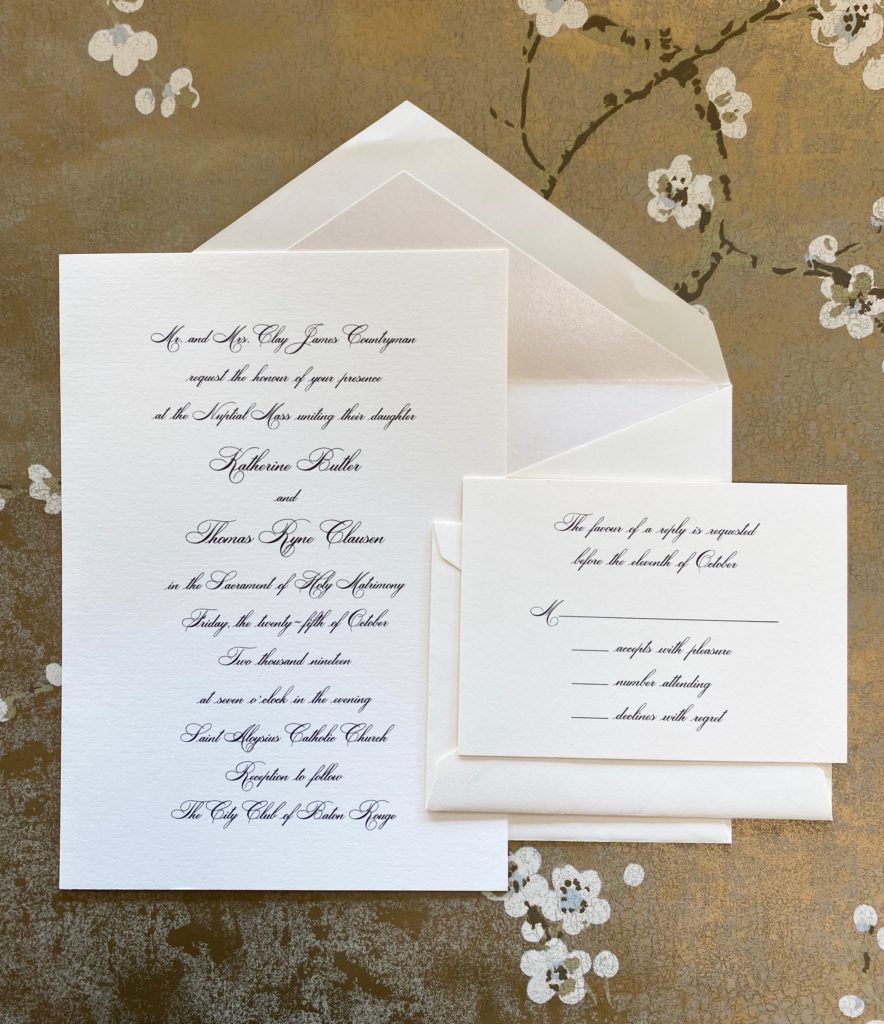 Mr. and Mrs. Clay James Countryman
request the honour of your presence
at the Nuptial Mass uniting their daughter
Katherine Butler
and
Thomas Ryne Clausen
in the Sacrament of Holy Matrimony
Friday, the twenty~fifth of October
Two thousand nineteen
at seven o'clock in the evening
Saint Aloysius Catholic Church
Reception to follow
The City Club of Baton Rouge
The favour of a reply is requested
before the eleventh of October
M
accepts with pleasure
number attending
declines with regret